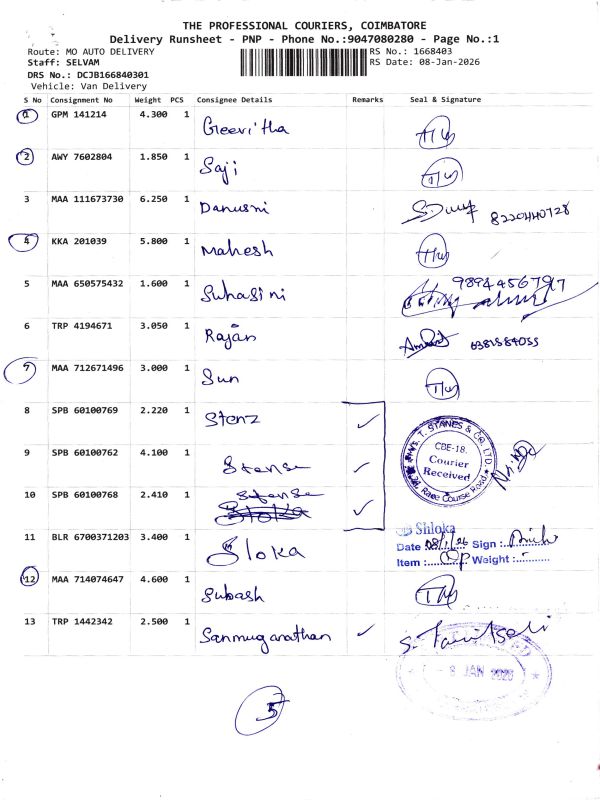 THE PROFESSIONAL COURIERS, COIMBATORE
Delivery Runsheet - PNP - Phone No.:9047080280 - Page No.:1
Route: MO AUTO DELIVERY RS No.: 1668403
Staff: SELVAM RS Date: 08-Jan-2026
DRS No.: DCJB166840301
Vehicle: Van Delivery
S No Consignment No Weight PCS Consignee Details Remarks Seal & Signature
1 GPM 141214 4.300 1 Greevitha
2 AWY 7602804 1.850 1 Saji
3 MAA 111673730 6.250 1 Danusni 8220440728
4 KKA 201039 5.800 1 Mahesh
5 MAA 650575432 1.600 1 Suhasini
6 TRP 4194671 3.050 1 Rajan
7 MAA 712671496 3.000 1 Sun
8 SPB 60100769 2.220 1 Stenz ✓
9 SPB 60100762 4.100 1 Stense ✓
10 SPB 60100768 2.410 1 Stense ✓
T. STANES & CO. LTD.
CBE-18.
Courier
Received
Race Course Road
11 BLR 6700371203 3.400 1 Sloka
Shloka
Date : 08/1/26 Sign :
Item : Weight :
12 MAA 714074647 4.600 1 Subash
13 TRP 1442342 2.500 1 Sanmuganathan ✓
8 JAN 2026
5